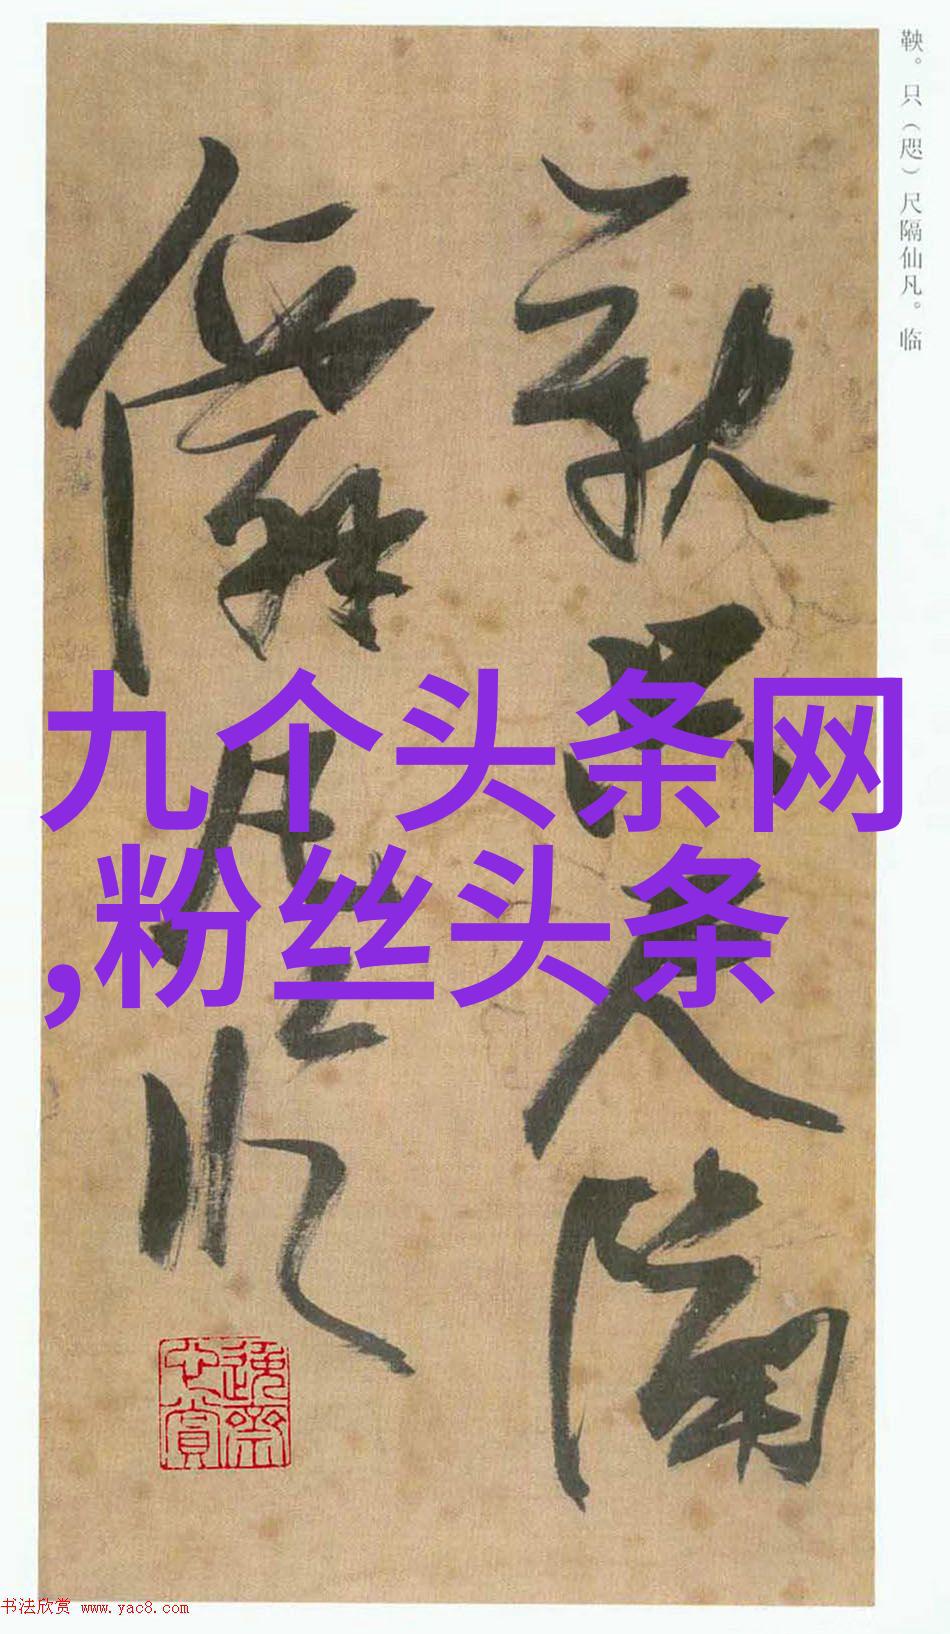 鞅。只（咫）尺隔仙凡。临
鞅只尺隔
僊凡临
九个头条网
,粉丝头条
书法欣赏 www.yac8.com